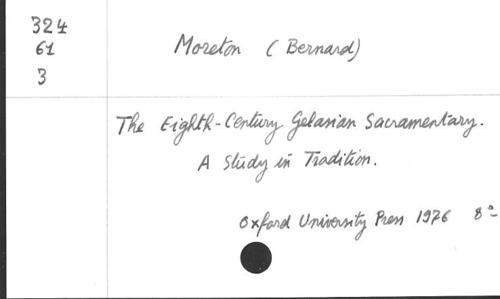 324
61
3
Moreton (Bernard)
The Eighth-Century Gelasian Sacramentary.
A Study in Tradition.
Oxford University Press 1976 8º